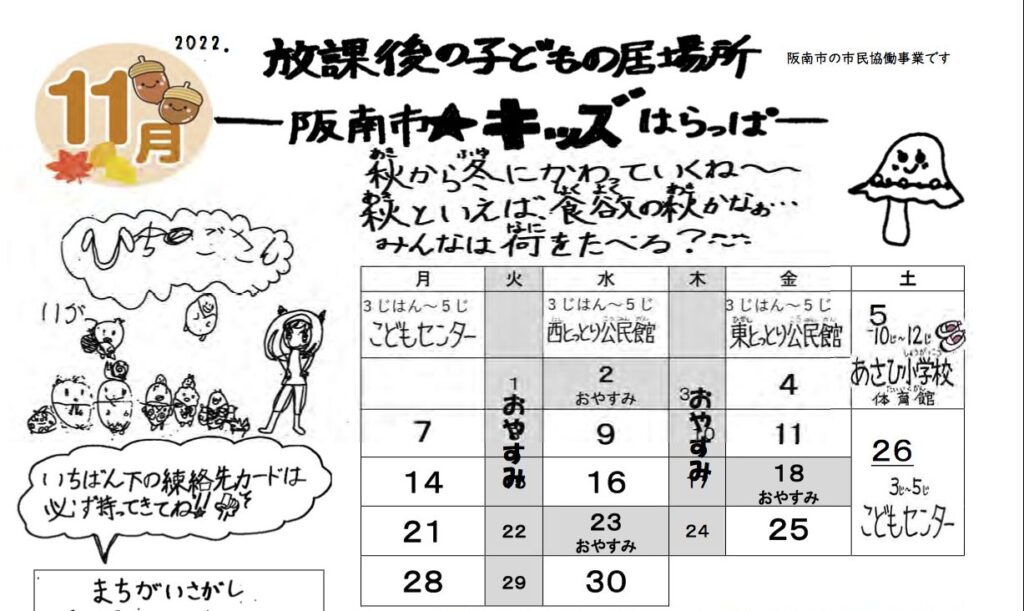 2022.
11月
放課後の子どもの居場所
阪南市の市民協働事業です
阪南市★キッズはらっぱ
秋から冬にかわっていくね〜〜
秋といえば、食欲の秋かなぁ…
みんなは何をたべる？
いちごさん
11が
いちばん下の練絡先カードは
必ず持ってきてね!!
まちがいさがし
月 火 水 木 金 土
3じはん〜5じ
こどもセンター
3じはん〜5じ
西とっとり公民館
3じはん〜5じ
東とっとり公民館
5
10じ〜12じ
あさひ小学校
体育館
1
2
おやすみ
3
4
おやすみ
おやすみ
7
9
10
11
14
16
17
18
おやすみ
26
3じ〜5じ
こどもセンター
21
22
23
おやすみ
24
25
28
29
30